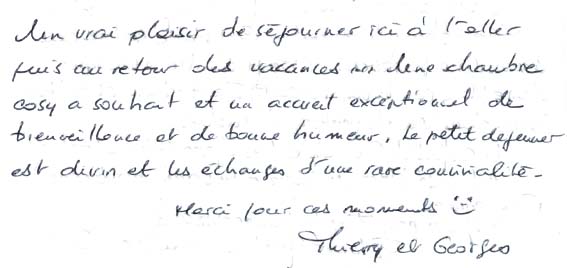 Un vrai plaisir de séjourner ici à l'aller
puis au retour des vacances dans une chambre
cosy a souhait et un accueil exceptionnel de
bienveillance et de bonne humeur. Le petit dejeuner
est divin et les échanges d'une rare convivialité.
Merci pour ces moments
Thierry et Georges